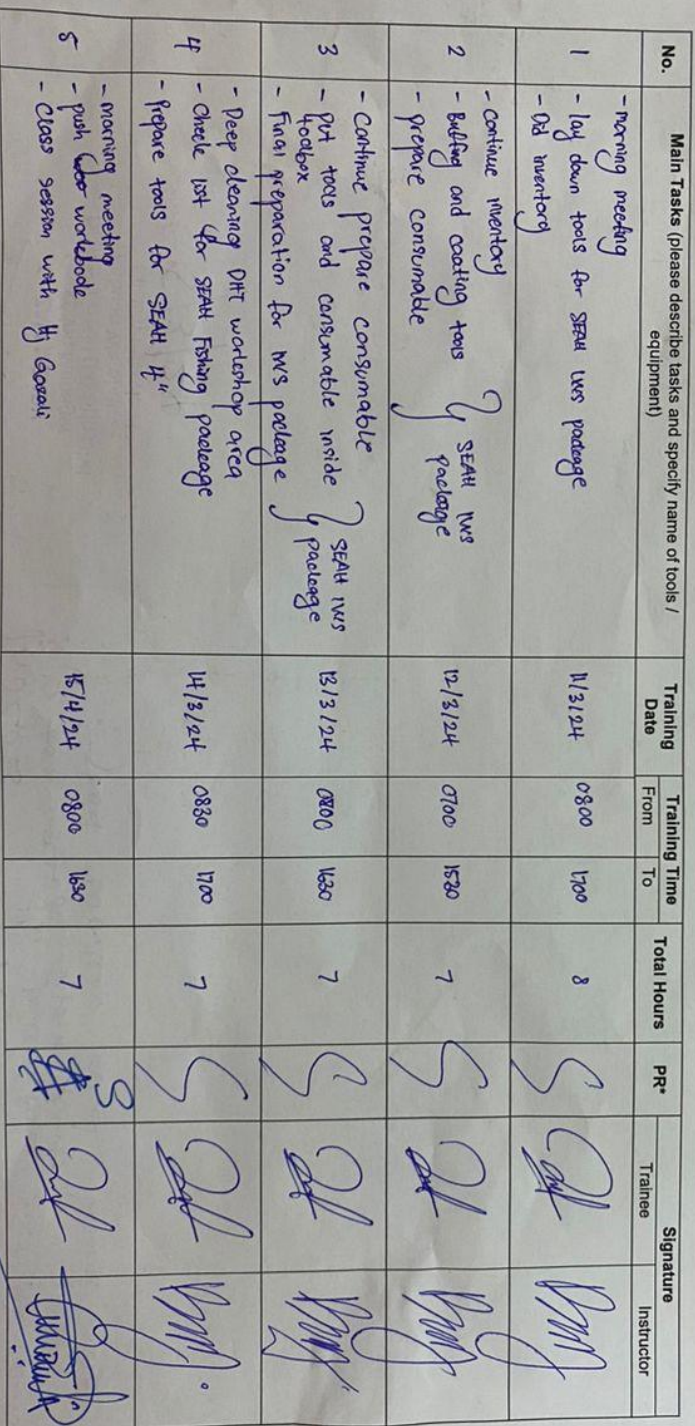 No.
Main Tasks (please describe tasks and specify name of tools /
equipment)
Training
Date
Training Time
From
To
Total Hours
PR*
Signature
Trainee
Instructor
1
- morning meeting
- lay down tools for SEAH IWS package
- Did inventory
11/3/24
0800
1700
8
S
2
- continue inventory
- Buffing and coating tools
- prepare consumable
SEAH IWS
package
12/3/24
0700
1530
7
S
3
- Continue prepare consumable
- put tools and consumable inside
toolbox
- Final preparation for IWS package
SEAH IWS
package
13/3/24
0800
1630
7
S
4
- Deep cleaning DHT workshop area
- Check list for SEAH Fishing package
- Prepare tools for SEAH 4"
14/3/24
0830
1700
7
S
5
- morning meeting
- push workbode
- Class session with Hj Gozali
15/4/24
0800
1630
7
S